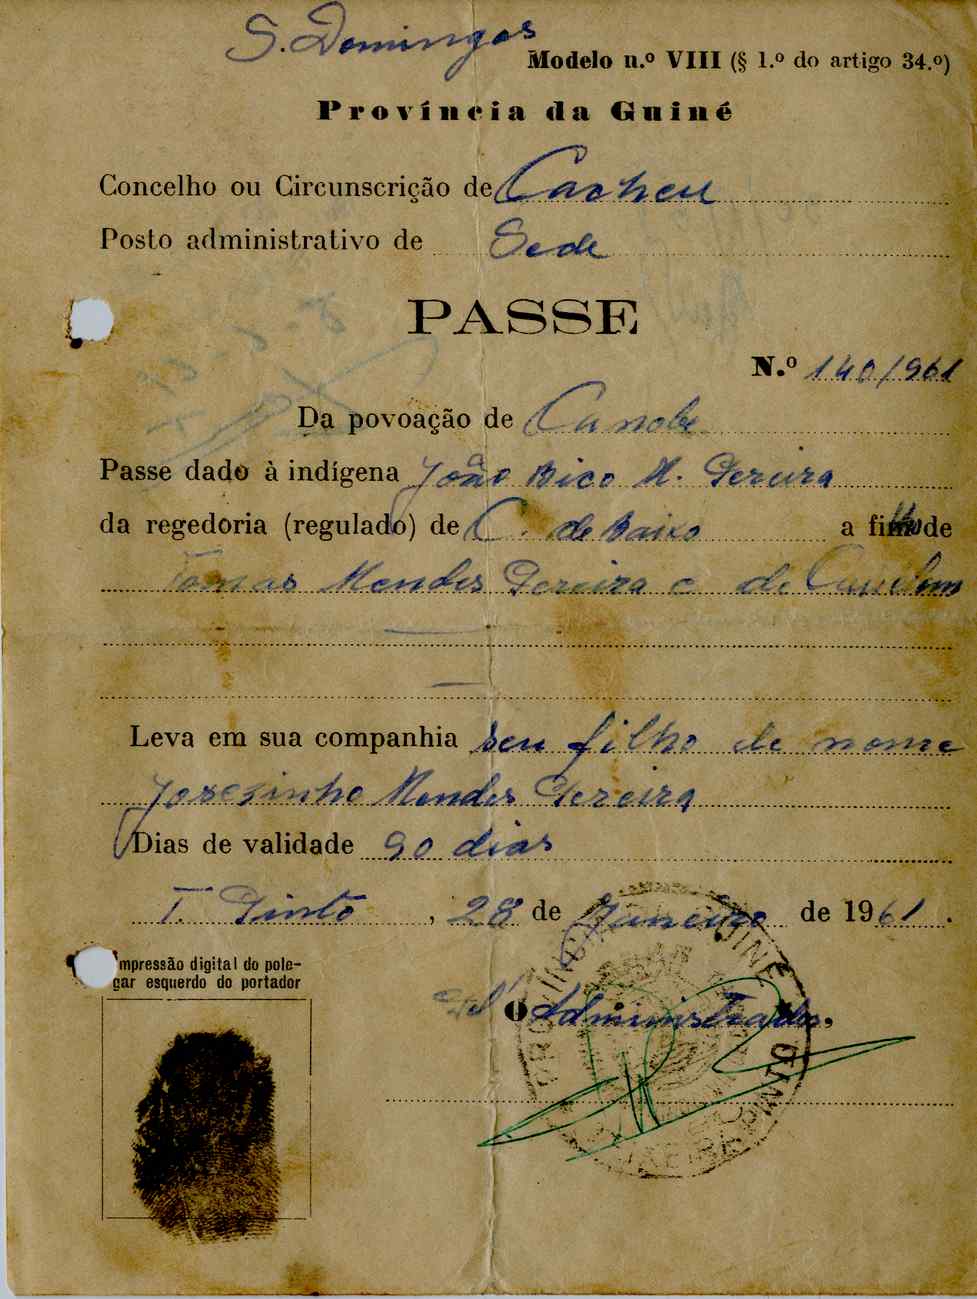 S. Domingos
Modelo n.º VIII (§ 1.º do artigo 34.º)
Província da Guiné
Concelho ou Circunscrição de Cacheu
Posto administrativo de Sede
PASSE
N.º 140/961
Da povoação de Canobe
Passe dado à indígena João Bico M. Pereira
da regedoria (regulado) de C. de Baixo a filho de
Tomás Mendes Pereira e de
Leva em sua companhia seu filho de nome
Josezinho Mendes Pereira
Dias de validade 90 dias
T. Pinto, 28 de Janeiro de 1961.
Impressão digital do pole-
gar esquerdo do portador
O Administrador,
PROVÍNCIA GUINÉ
PINTO